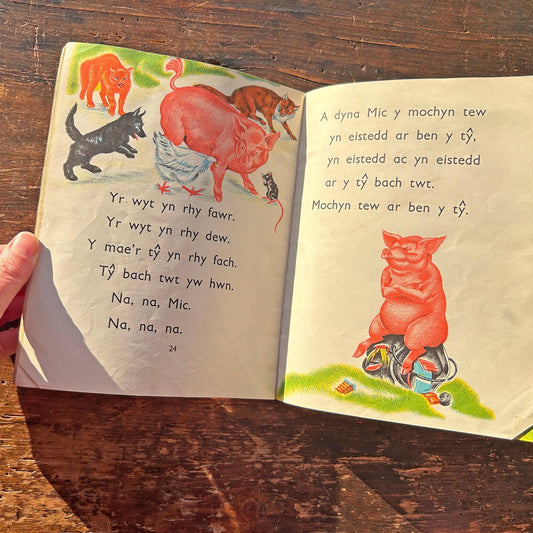 Yr wyt yn rhy fawr.
Yr wyt yn rhy dew.
Y mae'r tŷ̂ yn rhy fach.
Tŷ̂ bach twt yw hwn.
Na, na, Mic.
Na, na, na.
24
A dyna Mic y mochyn tew
yn eistedd ar ben y tŷ,
yn eistedd ac yn eistedd
ar y tŷ bach twt.
Mochyn tew ar ben y tŷ.